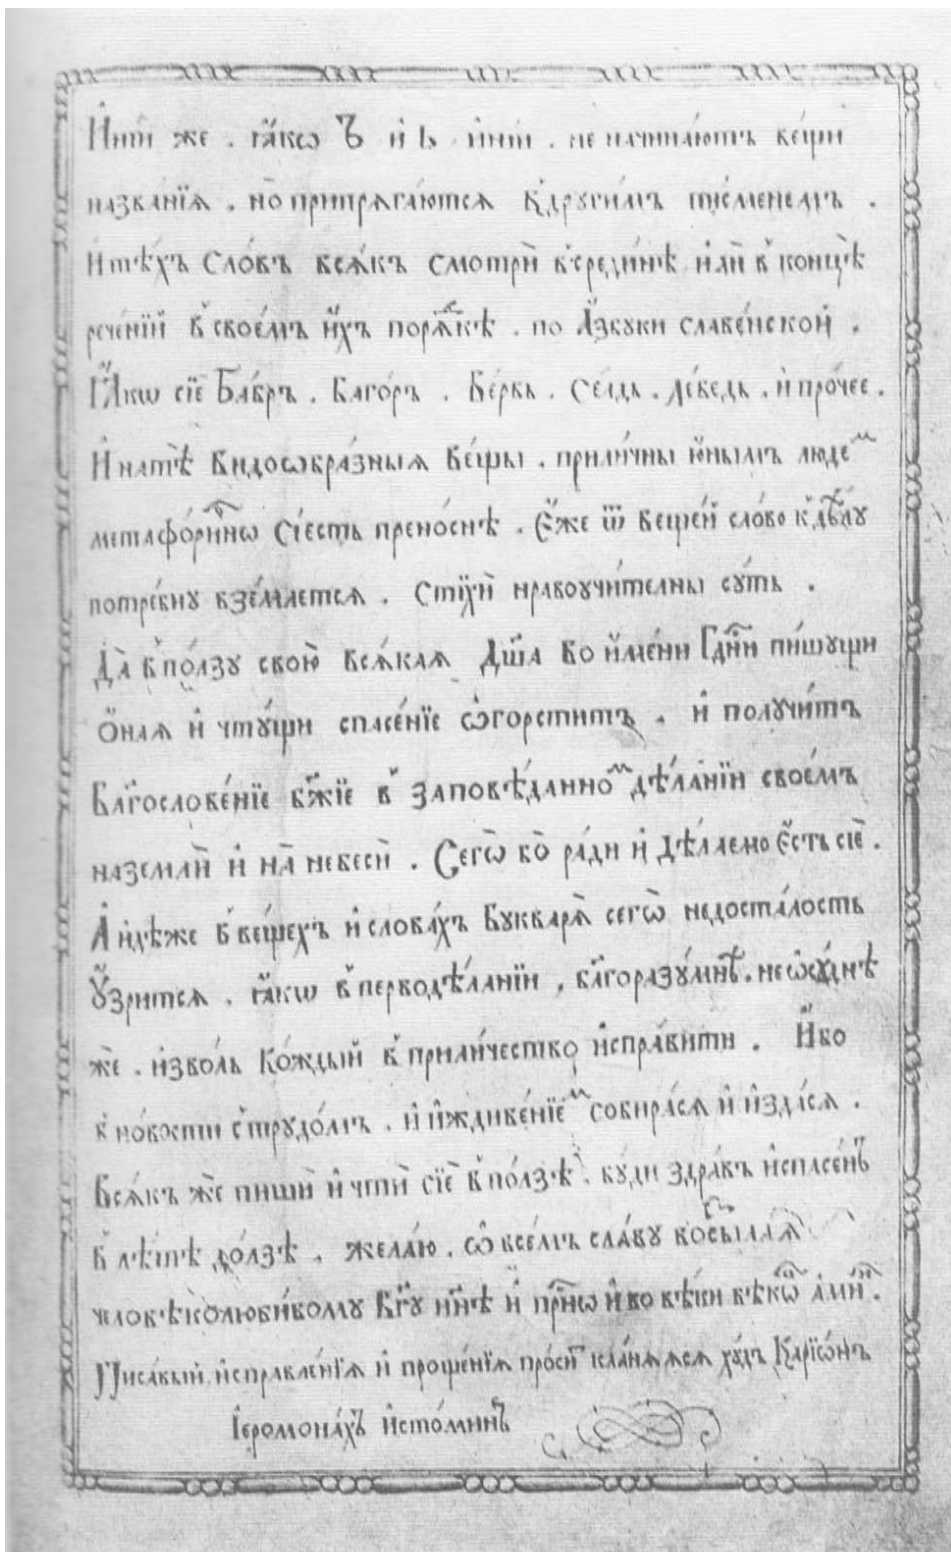 И҆ні́и же . ꙗ҆́кѡ Ъ и҆ Ь и҆ні́и . не начина́ютъ ве́щи
назва́нїѧ . но̀ припрѧга́ютсѧ к̾други́мъ пи́сменемъ .
И тѣ́хъ сло́въ всѧ́къ смотрѝ в̾среди́нѣ и҆лѝ в̾ конц̀ѣ
рече́нїй в̾ свое́мъ и҆́хъ порѧ́дкѣ . по А҆́збуки славе́нской .
Ꙗ҆́кѡ сїѐ Ба́бръ . Баго́ръ . Ве́рвь . Се́лдь . Ле́бедь . и҆ про́чее .
И҆ на тѣ̀ видоѡбра́зныѧ ве́щы . прили́чны ю҆́нымъ люде́ⷨ
метафо́ричнѡ сі́есть прено́снѣ . Е҆́же ѿ веще́й сло́во к̾ дѣ́лу
потре́бну взе́млетсѧ . Стїхѝ нравоучи́телны су́ть .
Да̀ в̾ по́лзу свою̀ всѧ́каѧ Дш҃а во и҆́мени Гдⷭ҇ни пи́шущи
О҆́наѧ и҆ чту́щи спасе́нїе ѡ҆горститъ . и҆ получи́тъ
Блг҃ослове́нїе бж҃їе в̾ заповѣ́данноⷨ дѣ́ланїи свое́мъ
на землѝ и҆ на̀ небесѝ . Сегѡ̀ бо̀ ра́ди и҆ дѣ́лаемо є҆́сть сїѐ .
А҆ и҆дѣ́же в̾ ве́щехъ и҆ слова́хъ Букварѧ̀ сегѡ̀ недоста́лость
Ꙋ҆́зритсѧ . ꙗ҆́кѡ в̾ перводѣ́ланїи , бл҃горазу́мнѣ . не ѡ҆су́днѣ
жѐ . и҆зво́ль ко́ждый в̾ прили́чество и҆спра́вити . И҆́бо
в̾ но́вости с̾ трудо́мъ . и҆ и҆ждиве́нїеⷨ собира́сѧ и҆ и҆зда́сѧ .
Всѧ́къ жѐ пишѝ и҆ чтѝ сїѐ в̾ по́лзѣ . бу́ди здра́въ и҆ спасе́нъ
в̾ лѣ́тѣ до́лзѣ . жела́ю . ѡ҆ все́мъ сла́ву возсыла́ѧ
человѣколюби́вому Бг҃у нн҃ѣ и҆ прⷭ҇нѡ и҆ во вѣ́ки вѣкѡ́въ а҆ми́нь .
Писа́вый и҆справле́нїѧ и҆ проще́нїѧ про́ситъ кла́нѧѧсѧ ху́дъ Карїѡ́нъ
І҆еромона́хъ и҆сто́минъ